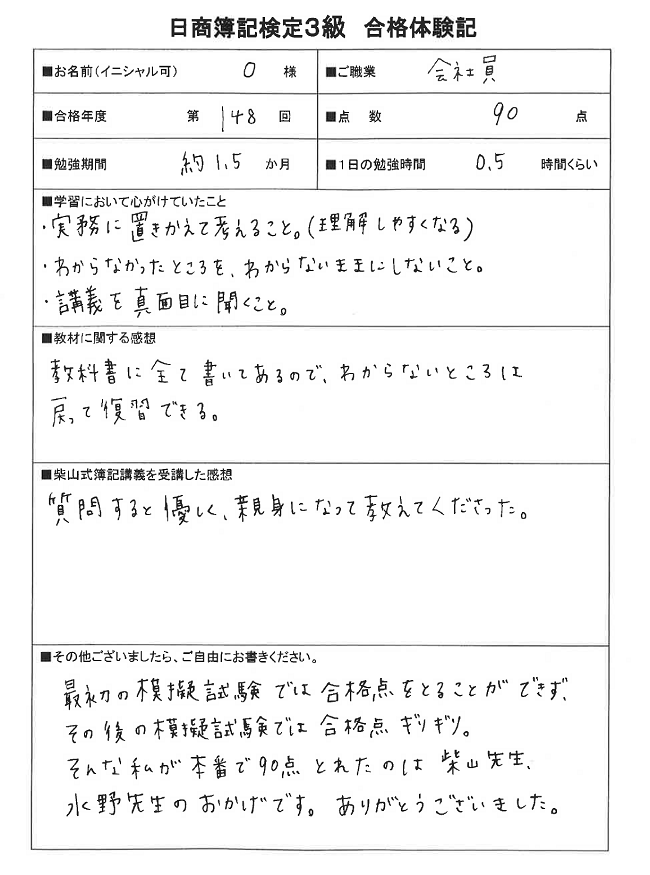 日商簿記検定3級 合格体験記
■お名前(イニシャル可) O 様 ■ご職業 会社員
■合格年度 第 148 回 ■点 数 90 点
■勉強期間 約1.5 か月 ■1日の勉強時間 0.5 時間くらい
■学習において心がけていたこと
・実務に置きかえて考えること。(理解しやすくなる)
・わからなかったところを、わからないままにしないこと。
・講義を真面目に聞くこと。
■教材に関する感想
教科書に全て書いてあるので、わからないところは
戻って復習できる。
■柴山式簿記講義を受講した感想
質問すると優しく、親身になって教えてくださった。
■その他ございましたら、ご自由にお書きください。
最初の模擬試験では合格点をとることができず、
その後の模擬試験では合格点ギリギリ。
そんな私が本番で90点とれたのは柴山先生、
水野先生のおかげです。ありがとうございました。